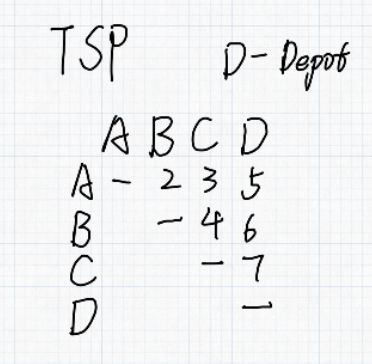 TSP D- Depot
A B C D
A - 2 3 5
B - 4 6
C - 7
D -